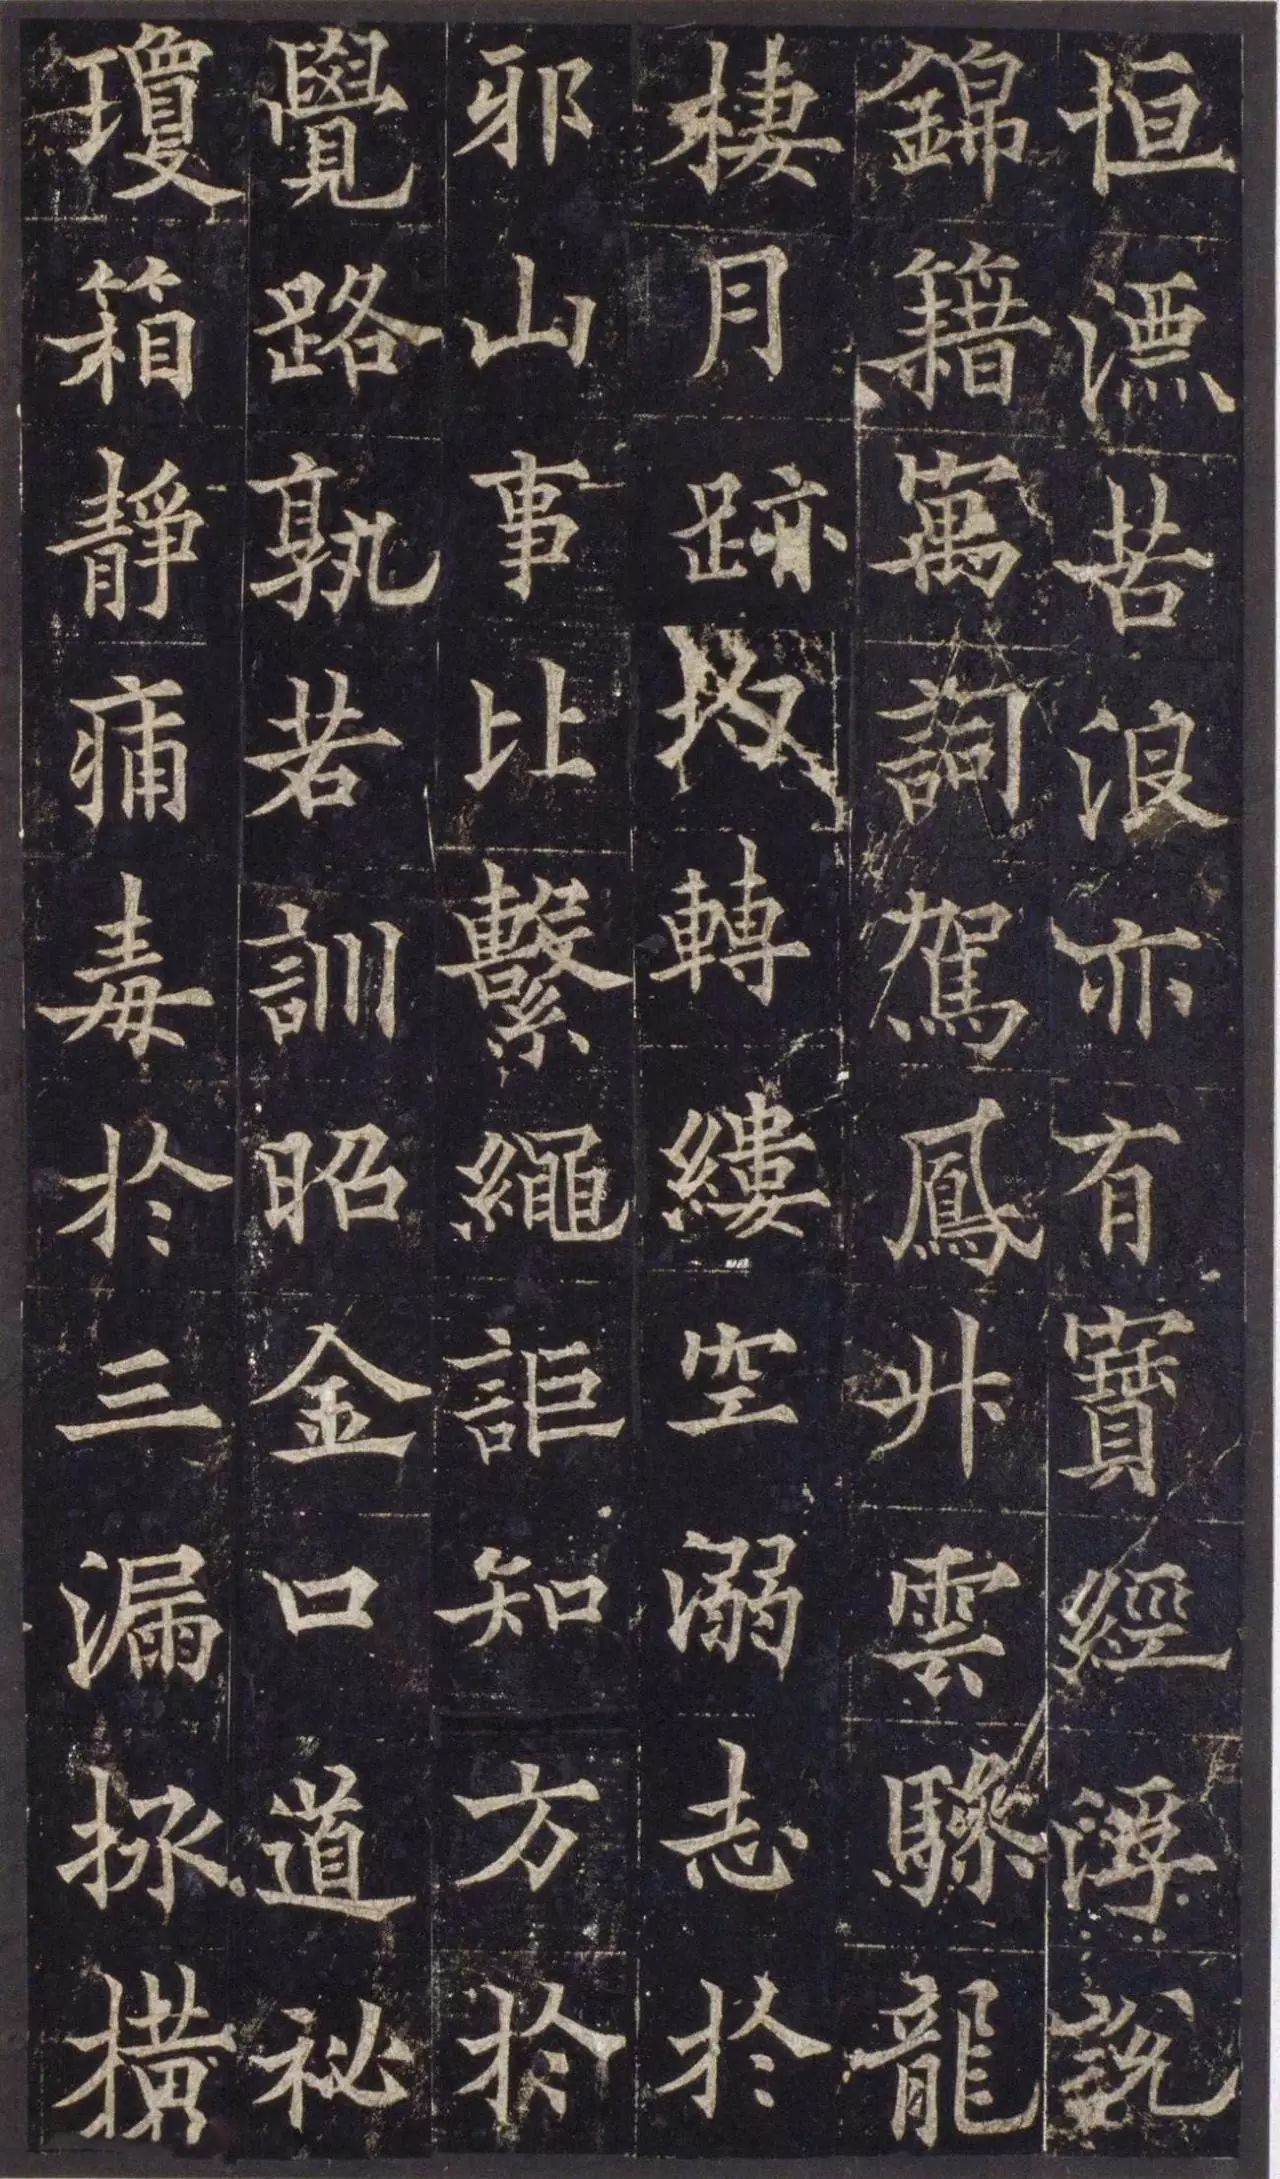 恒漂苦浪亦有寶經浮說
錦籍寓詞駕鳳升雲驂龍
棲月跡均轉縷空溺志於
邪山事比繫繩詎知方於
覺路孰若訓昭金口道祕
瓊箱靜痛毒於三漏拯橫